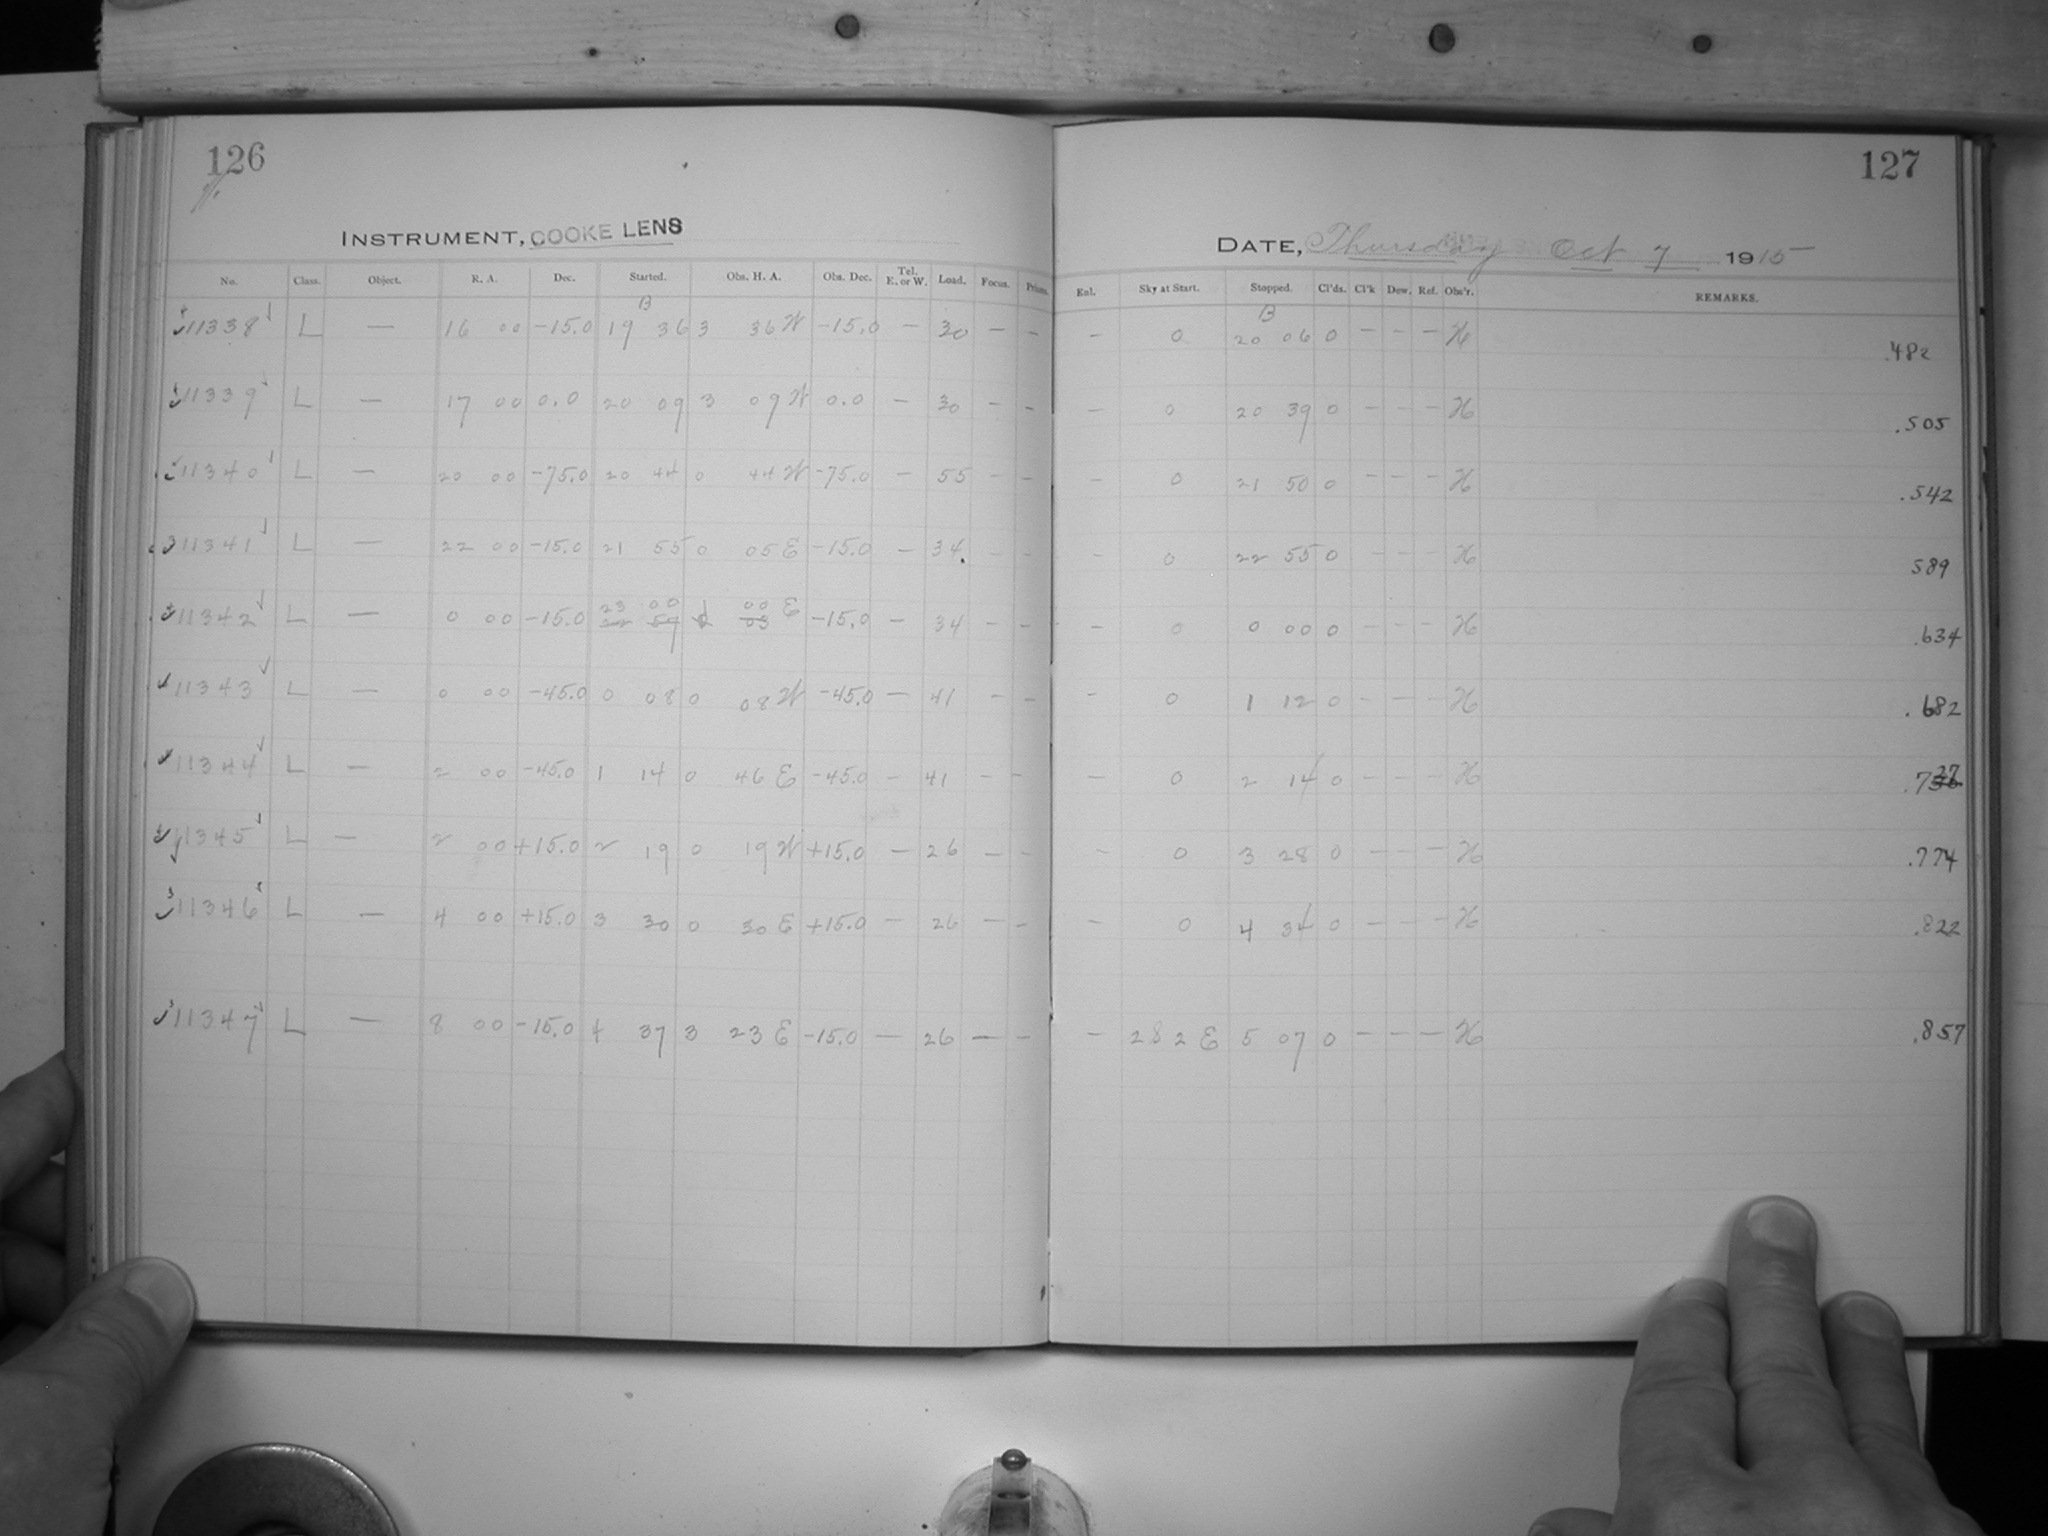 126
127
INSTRUMENT, COOKE LENS
DATE, Thursday Oct 7 1915
No. Class. Object. R. A. Dec. Started. Obs. H. A. Obs. Dec. Tel. E. or W. Load. Focus. Prisms. Enl. Sky at Start. Stopped. Cl'ds. Cl'k Dew. Ref. Obs'r. REMARKS.
B B
11338 L — 16 00 -15.0 19 36 3 36 W -15.0 — 30 — — — 0 20 06 0 — — — H .482
11339 L — 17 00 0.0 20 09 3 09 W 0.0 — 30 — — — 0 20 39 0 — — — H .505
11340 L — 20 00 -75.0 20 44 0 44 W -75.0 — 55 — — — 0 21 50 0 — — — H .542
11341 L — 22 00 -15.0 21 55 0 05 E -15.0 — 34 — — — 0 22 55 0 — — — H 589
23 00 1 00 E
11342 L — 0 00 -15.0 22 59 03 -15.0 — 34 — — — 0 0 00 0 — — — H .634
11343 L — 0 00 -45.0 0 08 0 08 W -45.0 — 41 — — — 0 1 12 0 — — — H .682
11344 L — 2 00 -45.0 1 14 0 46 E -45.0 — 41 — — — 0 2 14 0 — — — H .737
11345 L — 2 00 +15.0 2 19 0 19 W +15.0 — 26 — — — 0 3 28 0 — — — H .774
11346 L — 4 00 +15.0 3 30 0 30 E +15.0 — 26 — — — 0 4 34 0 — — — H .822
11347 L — 8 00 -15.0 4 37 3 23 E -15.0 — 26 — — — 282 E 5 07 0 — — — H .857